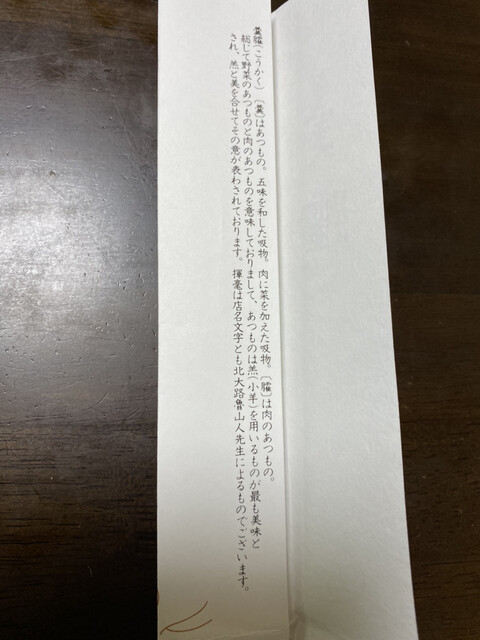 羹臛(こうかく) 〔羹〕はあつもの。五味を和した吸物。肉に菜を加えた吸物。〔臛〕は肉のあつもの。
総じて野菜のあつものと肉のあつものを意味しておりまして、あつものは羔(小羊)を用いるものが最も美味と
され、羔と美を合せてその意が表わされております。 揮毫は店名文字とも北大路魯山人先生によるものでございます。